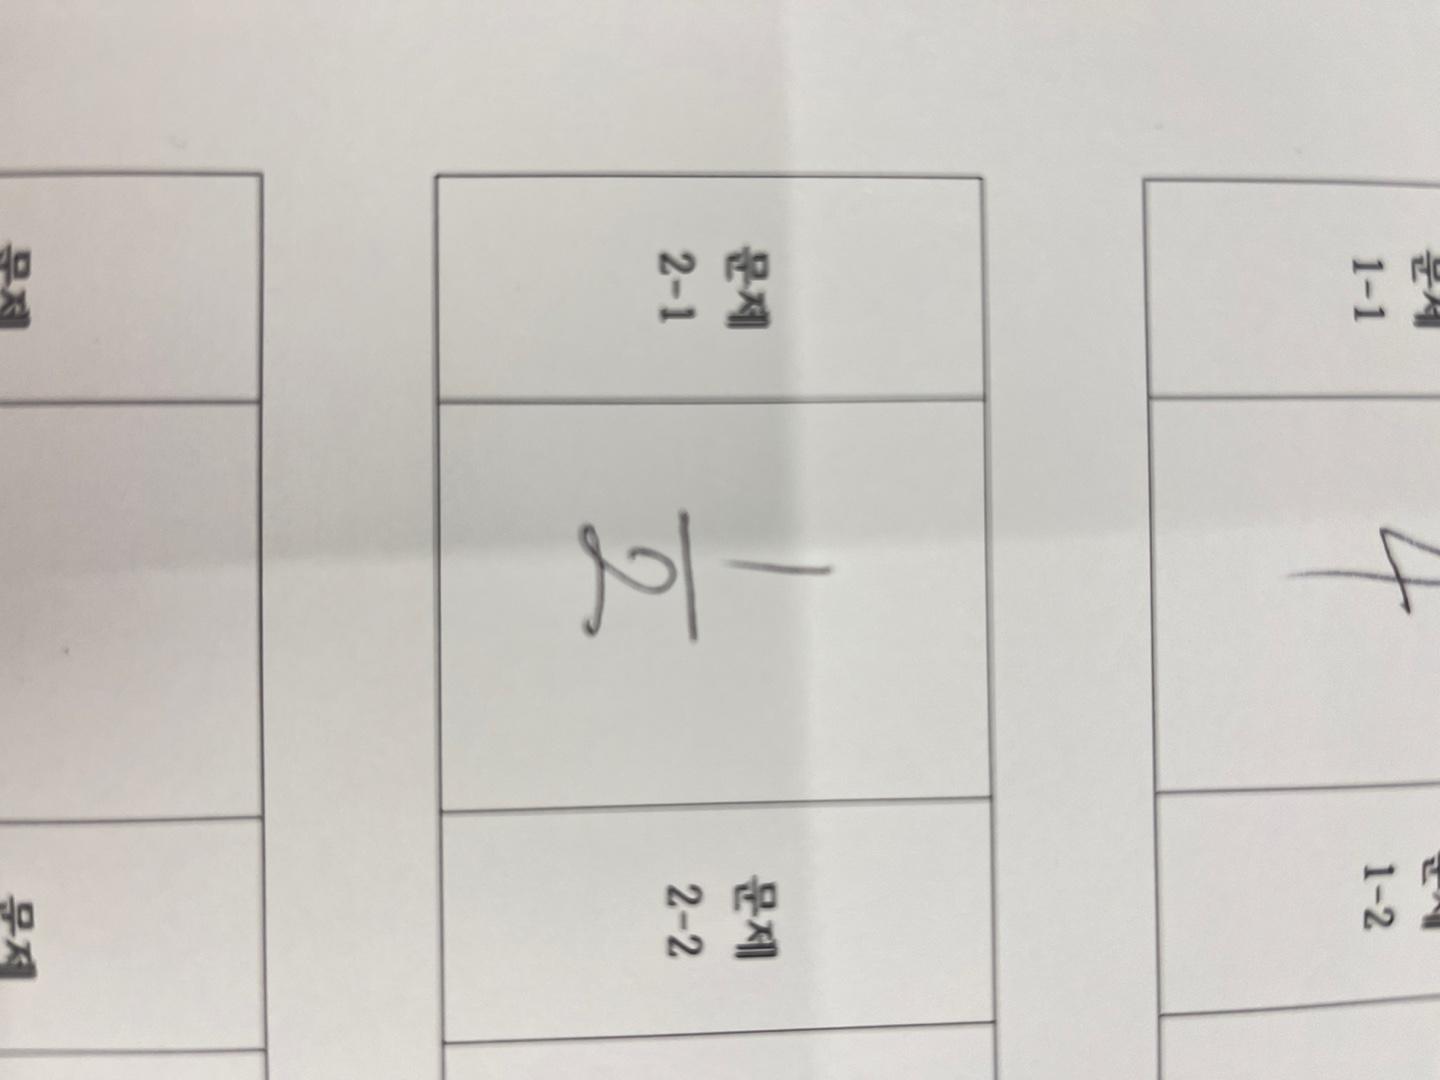 문제
1-1
4
문제
1-2
문제
2-1
1/2
문제
2-2
문제
문제